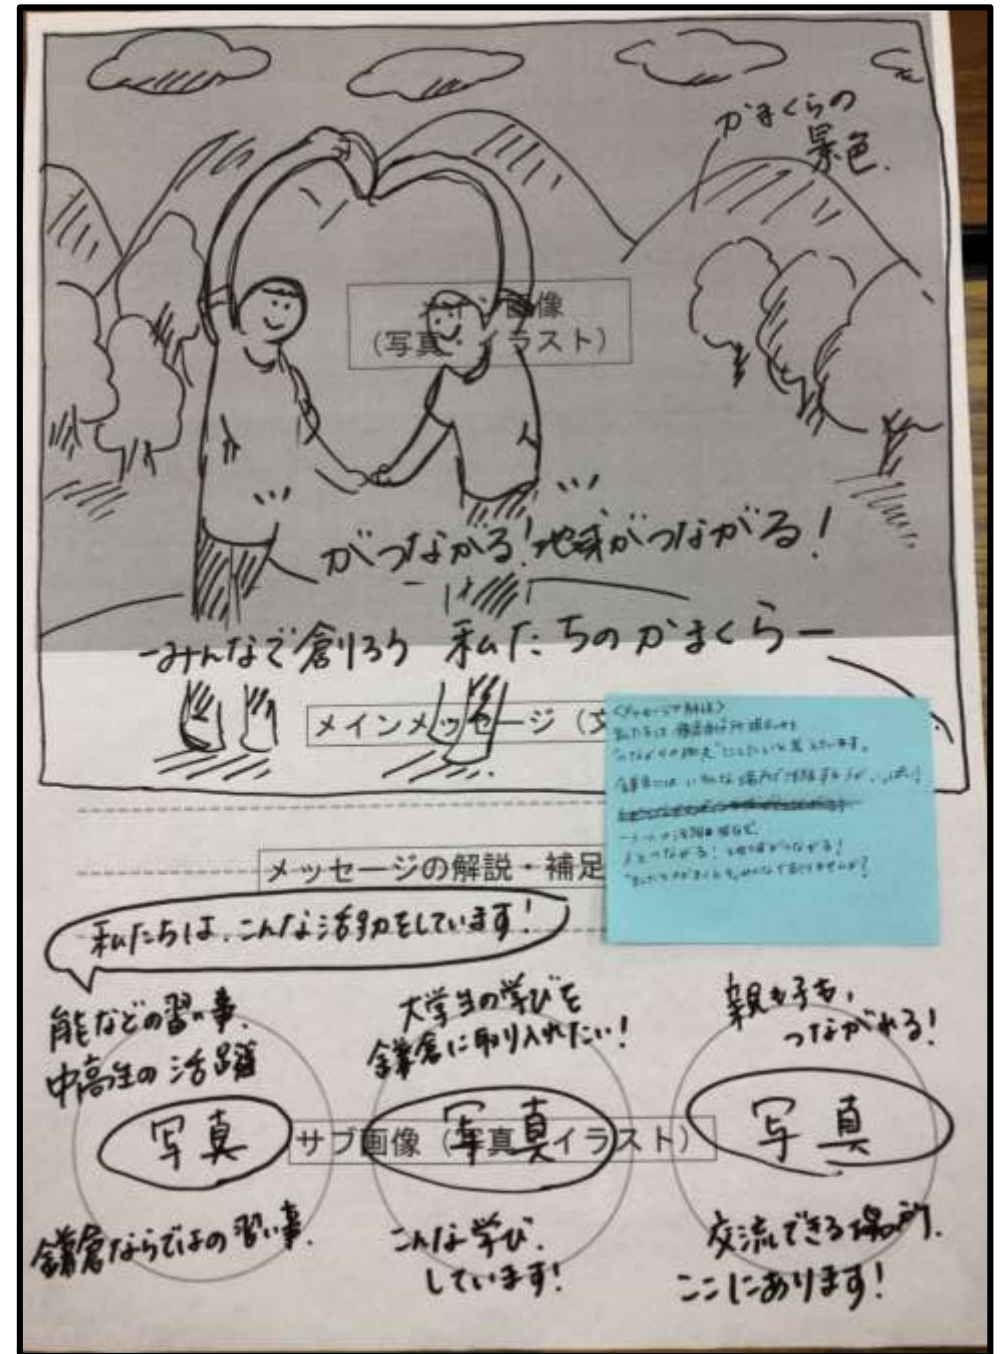 かまくらの
景色.
メイン画像
(写真・イラスト)
がつながる!地域がつながる!
ーみんなで創ろう 私たちのかまくらー
メインメッセージ (文
<メッセージの解説>
私たちは
にしたいと考えています。
鎌倉には、いろんな場所で活躍する人がいっぱい!
人とつながる!地域がつながる!
メッセージの解説・補足
私たちは、こんな活動をしています!
能などの習い事.
中高生の活躍
写真
鎌倉ならではの習い事.
大学生の学びを
鎌倉に取り入れたい!
写真
こんな学び.
しています!
親も子も、
つながれる!
写真
交流できる場所.
ここにあります!
サブ画像 (写真・イラスト)